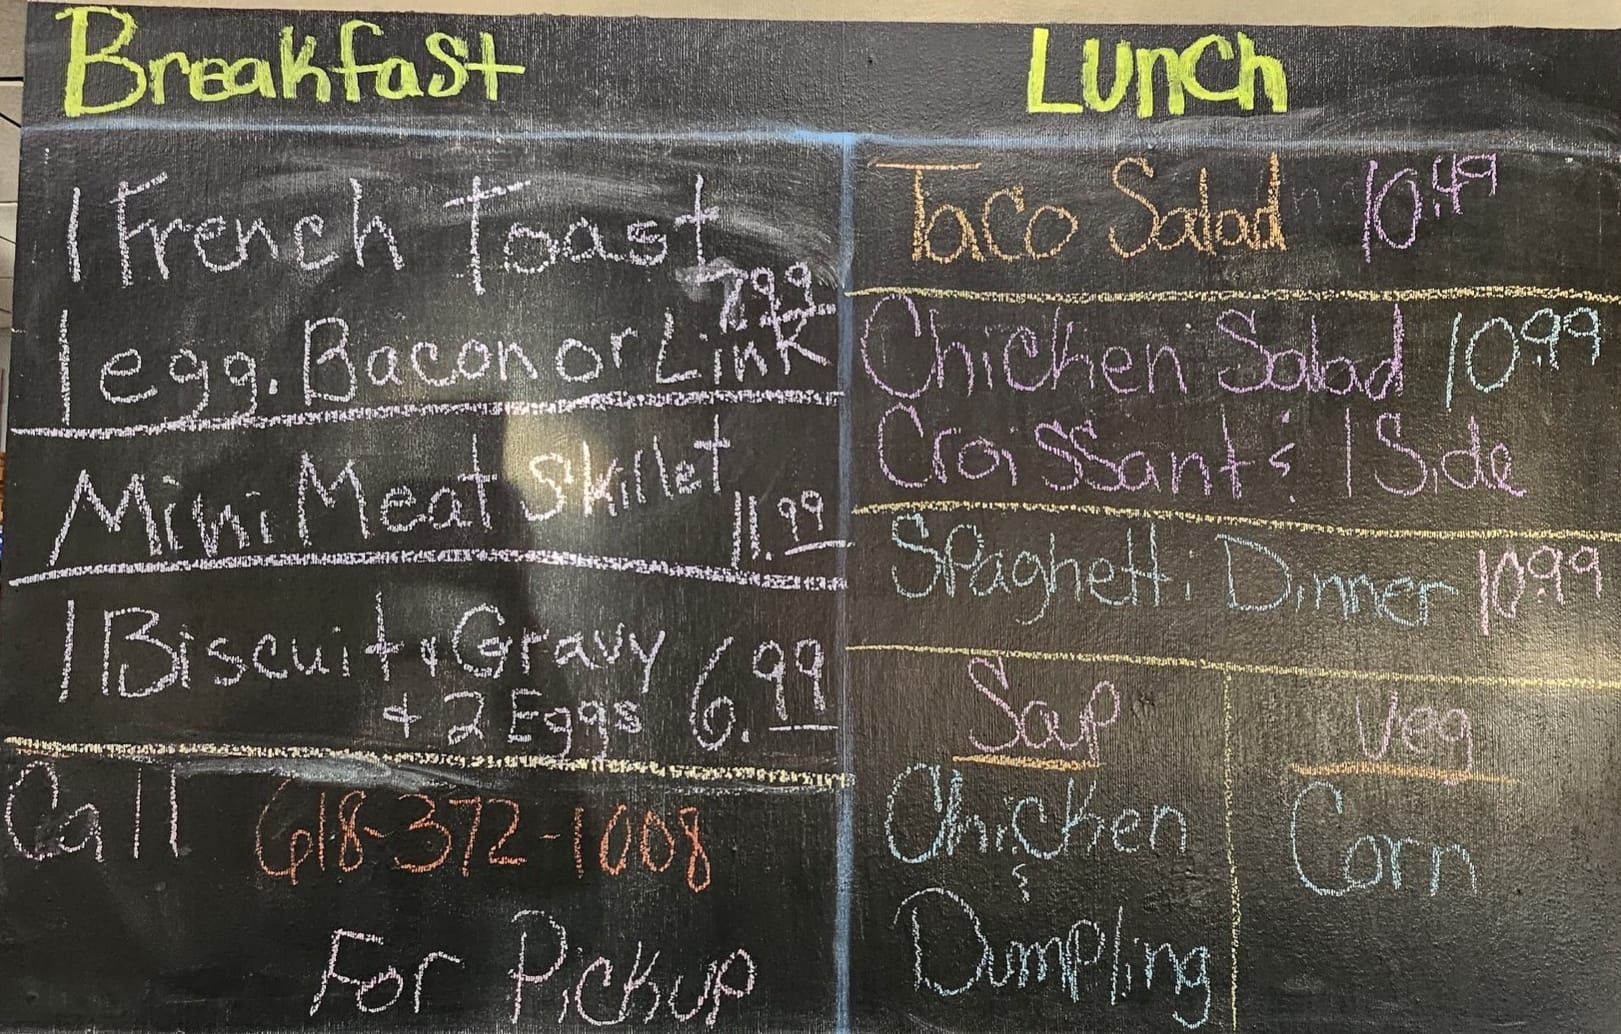 Breakfast
1 French Toast
7.99
1 egg. Bacon or Link
Mini Meat Skillet
11.99
1 Biscuit & Gravy
& 2 Eggs 6.99
Call 618-372-1008
For Pickup
Lunch
Taco Salad 10.49
Chicken Salad 10.99
Croissant & 1 Side
Spaghetti Dinner 10.99
Soup
Chicken
&
Dumpling
Veg
Corn